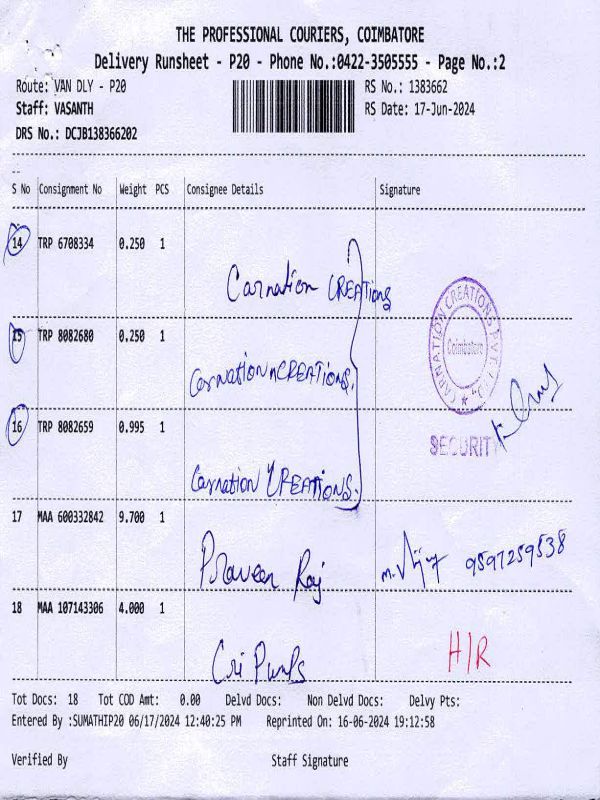 THE PROFESSIONAL COURIERS, COIMBATORE
Delivery Runsheet - P20 - Phone No.:0422-3505555 - Page No.:2
Route: VAN DLY - P20 RS No.: 1383662
Staff: VASANTH RS Date: 17-Jun-2024
DRS No.: DCJB138366202
S No Consignment No Weight PCS Consignee Details Signature
14 TRP 6708334 0.250 1
Carnation CREATIONS
15 TRP 8082680 0.250 1
Carnation CREATIONS.
CARNATION CREATIONS PVT LTD
Coimbatore
16 TRP 8082659 0.995 1
SECURITY
Carnation CREATIONS.
17 MAA 600332842 9.700 1
Praveen Raj 9597259538
18 MAA 107143306 4.000 1
Cri Pumps H/R
Tot Docs: 18 Tot COD Amt: 0.00 Delvd Docs: Non Delvd Docs: Delvy Pts:
Entered By :SUMATHIP20 06/17/2024 12:40:25 PM Reprinted On: 16-06-2024 19:12:58
Verified By Staff Signature